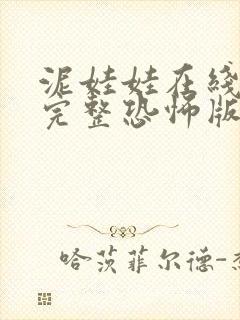 泥娃娃在线
完整恐怖版
哈茨菲尔德-杰